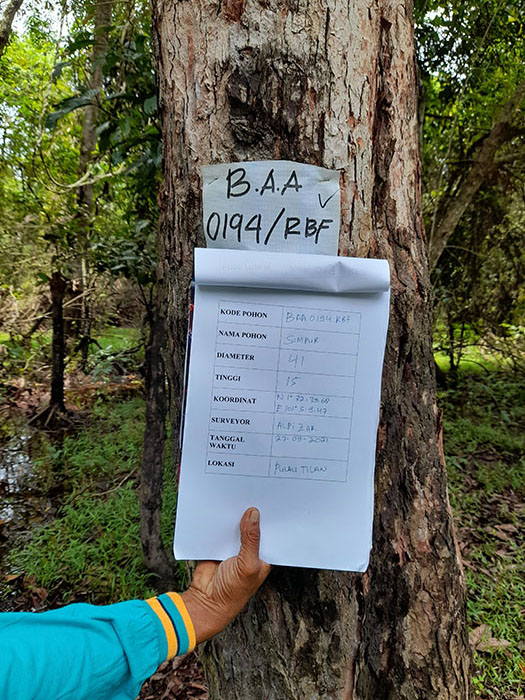 B.A.A
0194/RBF
KODE POHON BAA 0194 RBF
NAMA POHON SIMPUR
DIAMETER 41
TINGGI 15
KOORDINAT
SURVEYOR
TANGGAL WAKTU
LOKASI PULAU TILAN